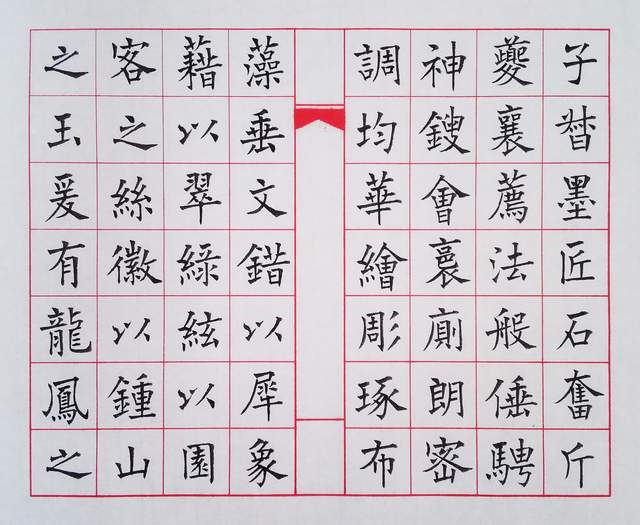 子督墨匠石奮斤
夔襄薦法般倕騁
神鎪會裛廁朗密
調均華繪彫琢布
藻垂文錯以犀象
藉以翠綠絃以園
客之絲徽以鍾山
之玉爰有龍鳳之